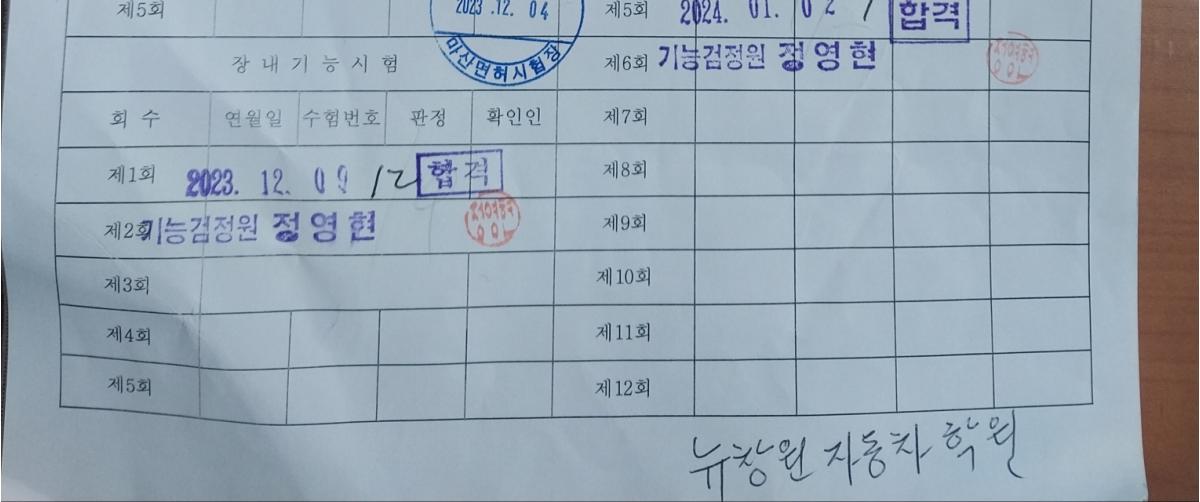 제5회
2023.12.04
마산면허시험장
장내기능시험
회 수 연월일 수험번호 판정 확인인
제1회 2023. 12. 09 12 합격
제2회 기능검정원 정영현
제3회
제4회
제5회
제5회 2024. 01. 02 1 합격
제6회 기능검정원 정영현
제7회
제8회
제9회
제10회
제11회
제12회
뉴창원 자동차 학원